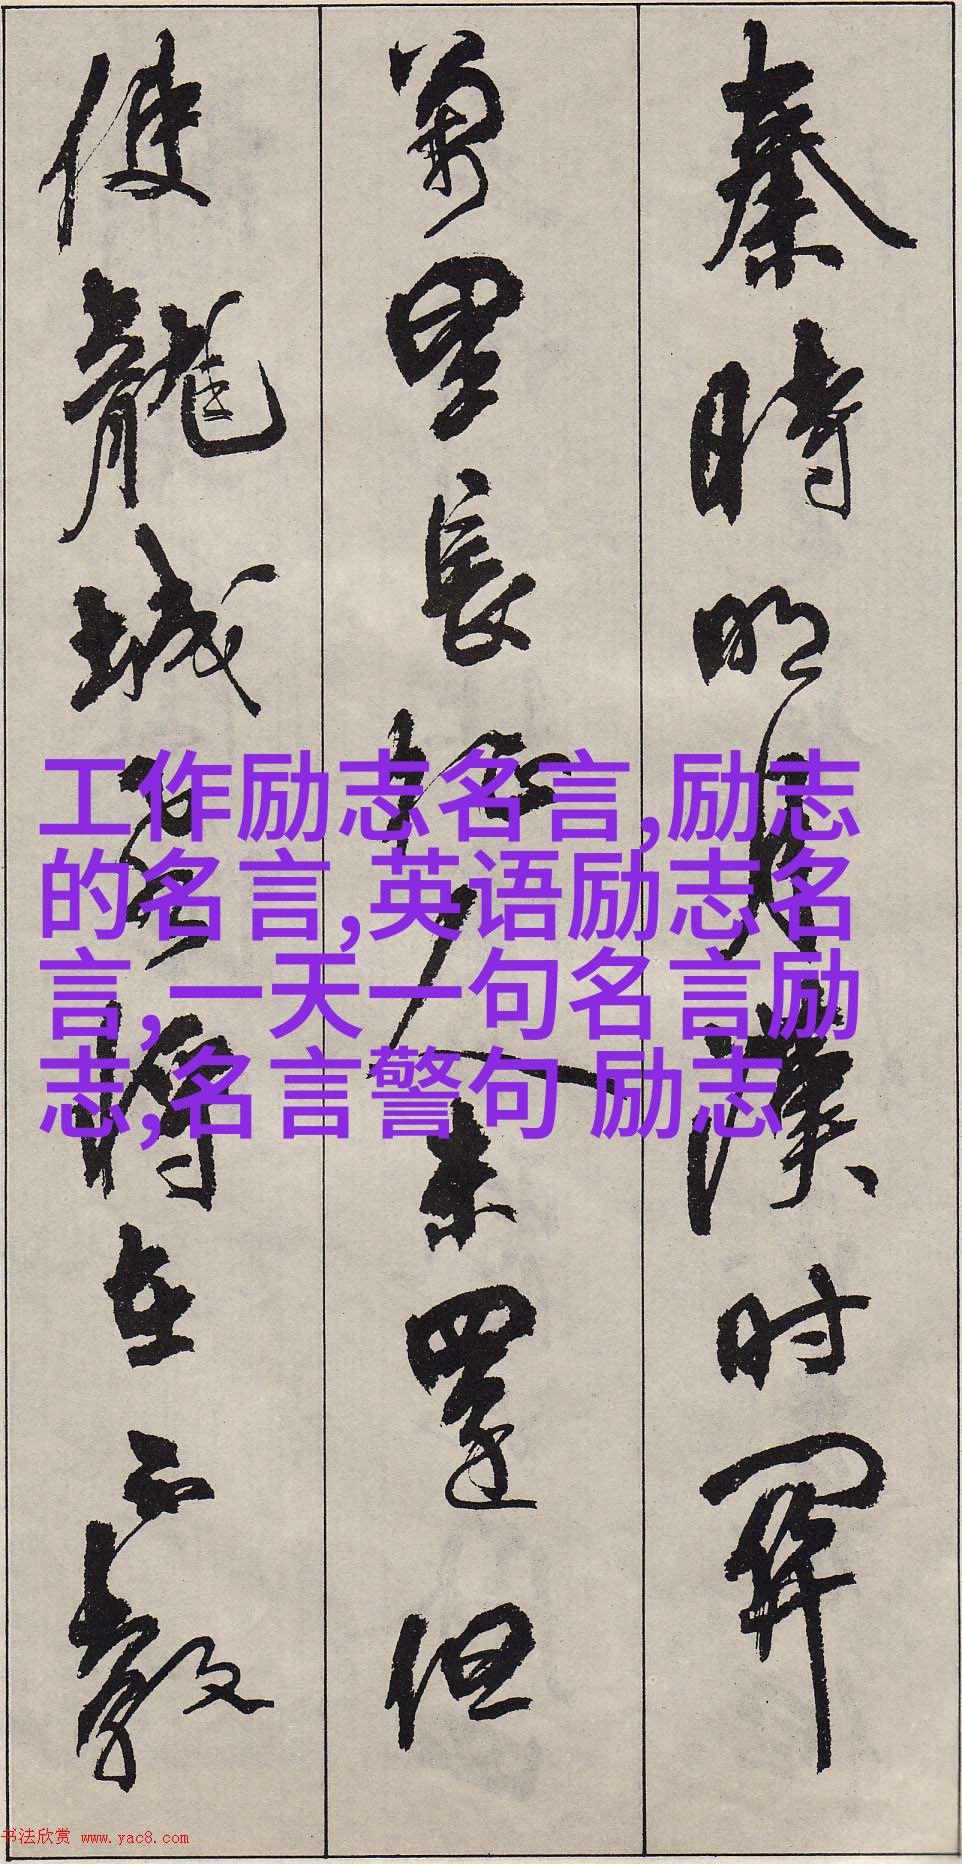 秦時明月漢时關
萬里長征人未還但
使龍城飛將在不教
工作励志名言,励志
的名言,英语励志名
言,一天一句名言励
志,名言警句 励志
书法欣赏 www.yac8.com